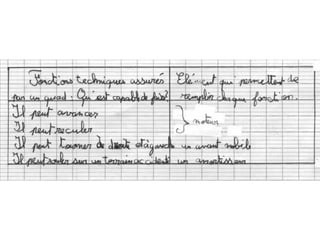 Fonctions techniques assurés Elément qui permettent de
par un quad. Qu'est capable de faire? remplir chaque fonction.
Il peut avancer } moteur
Il peut reculer
Il peut tourner de droite et à gauche un avant mobile
Il peut rouler sur un terrain accidenté un amortisseur